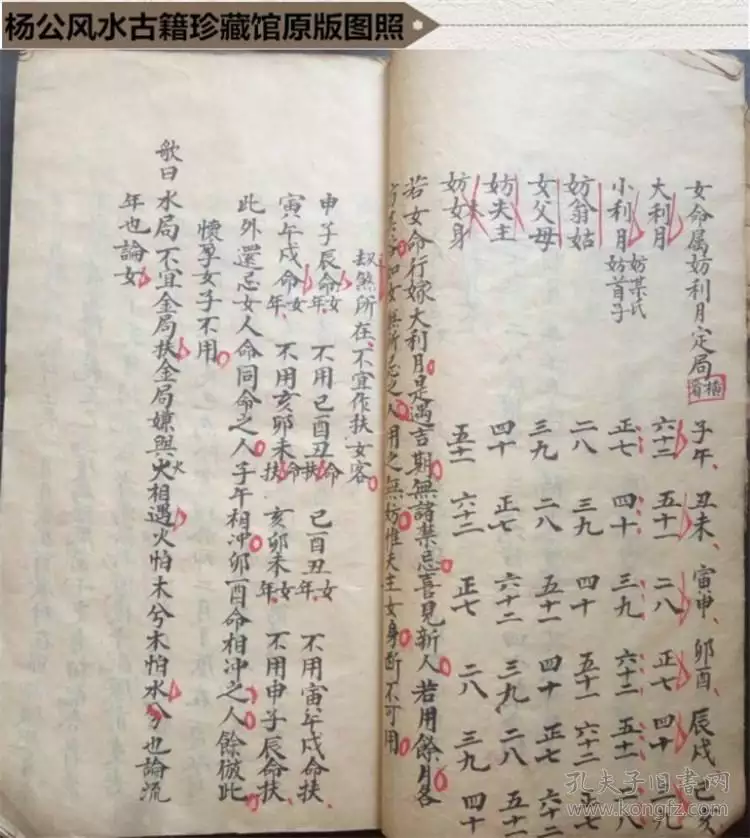 杨公风水古籍珍藏馆原版图照
女命属妨利月定局 横看 子午 丑未 寅申 卯酉 辰戌 巳亥
大利月 六十二 五十一 二八 正七 四十 三九
小利月 妨某氏 妨首子 正七 四十 三九 六十二 五十一 二八
妨翁姑 二八 三九 四十 五十一 六十二 正七
女父母 三九 二八 五十一 四十 正七 六十二
妨夫主 四十 正七 六十二 三九 二八 五十一
妨女身 五十一 六十二 正七 二八 三九 四十
若女命行嫁大利月是遇吉期無諸禁忌喜見新人若用餘月各
如女無所忌之人用之無妨惟夫主女身断不可用
叔煞所在不宜作扶女客
申子辰命女年 不用巳酉丑命扶 巳酉丑女年 不用寅午戌命扶
寅午戌命女年 不用亥卯未命扶 亥卯未女年 不用申子辰命扶
此外還忌女人命同命之人子午相冲卯酉命相冲之人餘倣此
懷孕女子不用
歌曰水局不宜金局扶金局嫌與火相遇火怕木兮木怕水兮也論流
年也論女
孔夫子旧书网
www.kongfz.com